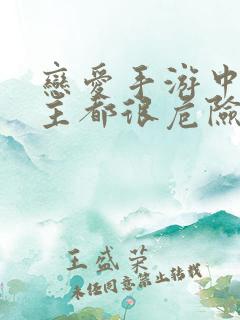 戀愛手游中
主都很危險
王盛榮
未經同意禁止轉載